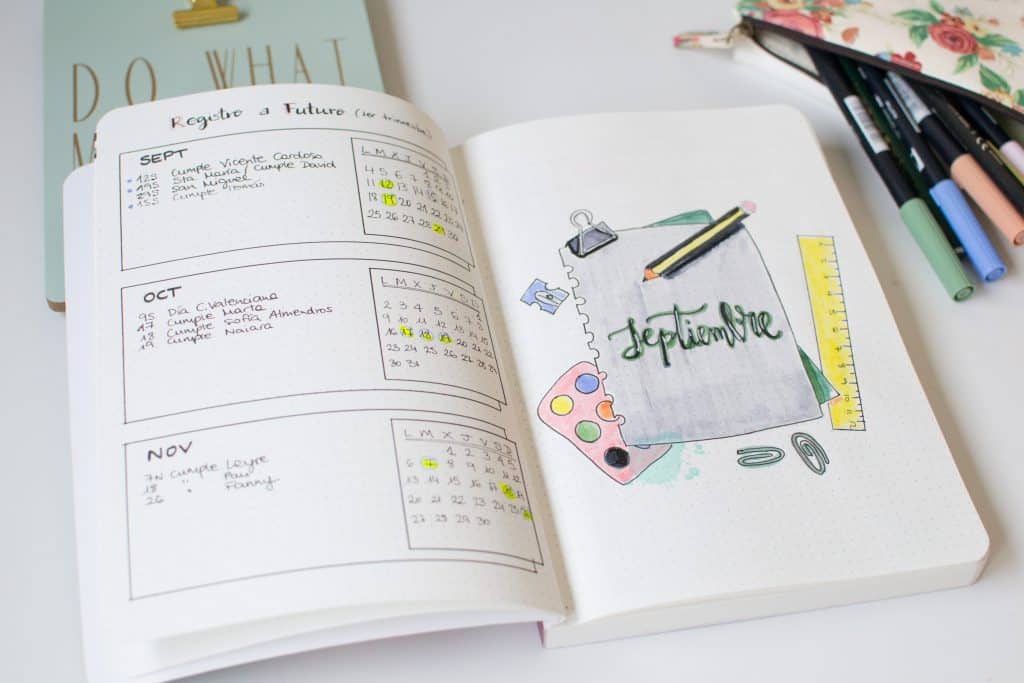 DO WHAT
Registro a Futuro (1er trimestre)
SEPT
12S Cumple Vicente Cardosa
19S Sta María / Cumple David
29S San Miguel
15S Cumple
L M X J V S
4 5 6 7 8 9
11 12 13 14 15 16
18 19 20 21 22 23
25 26 27 28 29 30
OCT
9S Día C. Valenciana
17 Cumple Marta
18 Cumple Sofía Almendros
19 Cumple Naiara
L M X J V S D
2 3 4 5 6 7 8
9 10 11 12 13 14
16 17 18 19 20 21 22
23 24 25 26 27 28 29
30 31
NOV
7N Cumple Leyre
18 "
26 " Fanny
L M X J V S D
1 2 3 4 5
6 7 8 9 10 11 12
13 14 15 16 17 18 19
20 21 22 23 24 25
27 28 29 30
Septiembre